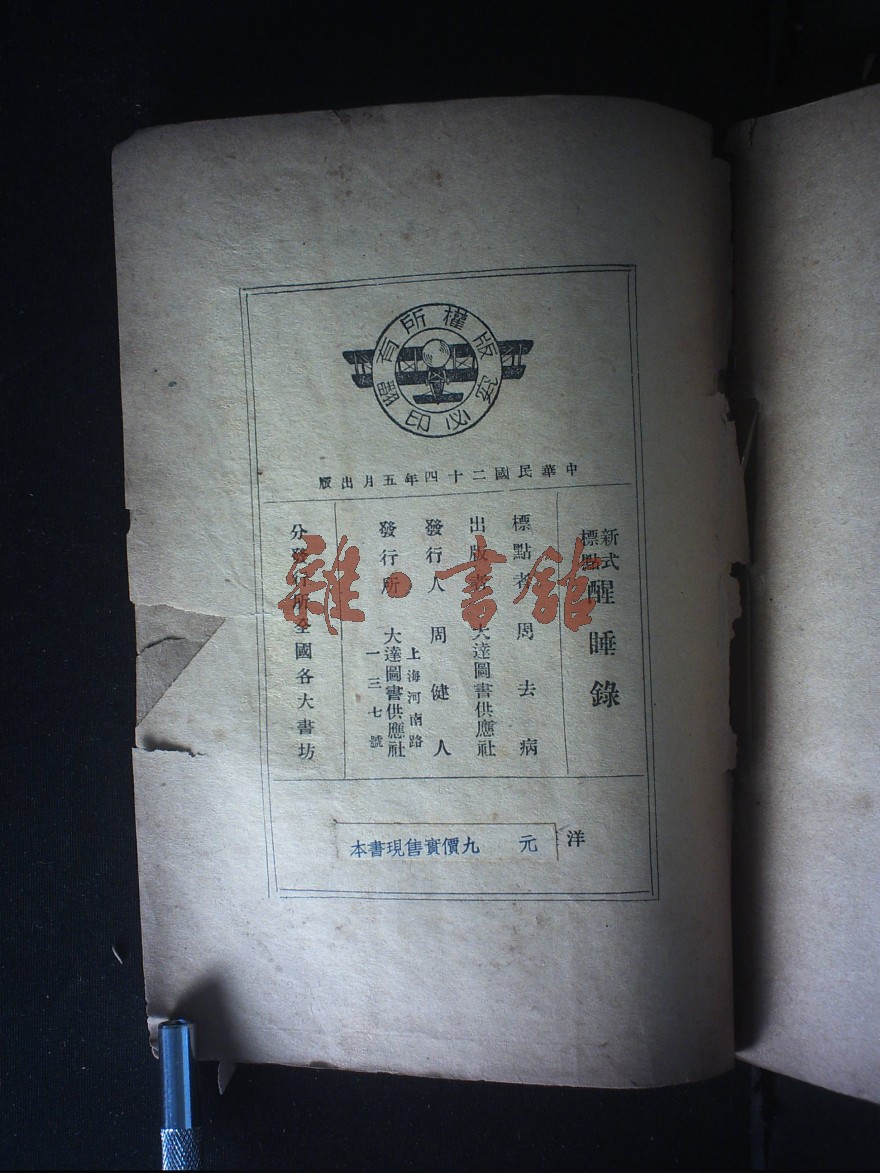 版權所有
翻印必究
中華民國二十四年五月出版
新式標點 醒睡錄
標點者 周去病
出版者 大達圖書供應社
發行人 周健人
發行所 大達圖書供應社
上海河南路
一三七號
分發行所全國各大書坊
洋
本書現售實價九 元
雜·書館